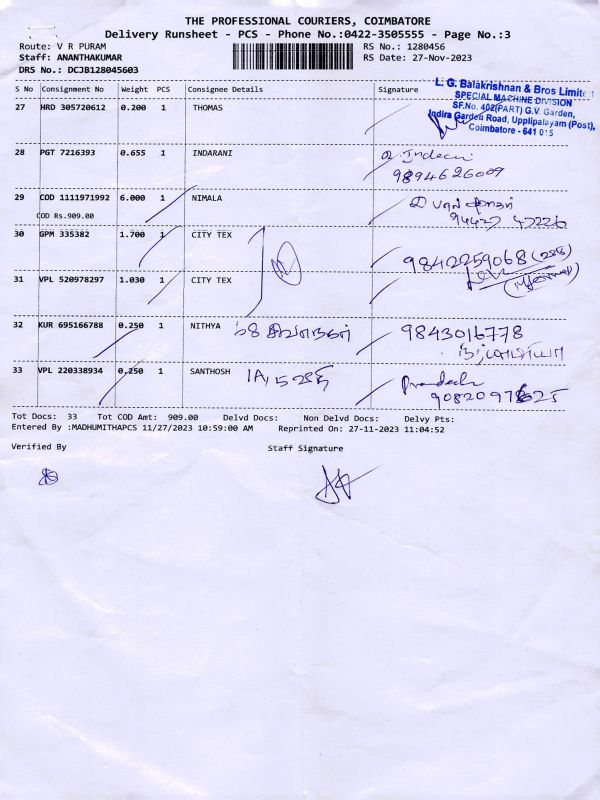 THE PROFESSIONAL COURIERS, COIMBATORE
Delivery Runsheet - PCS - Phone No.:0422-3505555 - Page No.:3
Route: V R PURAM RS No.: 1280456
Staff: ANANTHAKUMAR RS Date: 27-Nov-2023
DRS No.: DCJB128045603
S No Consignment No Weight PCS Consignee Details Signature
L. G. Balakrishnan & Bros Limited
SPECIAL MACHINE DIVISION
SF.No. 402(PART) G.V. Garden,
Indira Garden Road, Upplipalayam (Post),
Coimbatore - 641 015
27 HRD 305720612 0.200 1 THOMAS
28 PGT 7216393 0.655 1 INDARANI
9894626009
29 COD 1111971992 6.000 1 NIMALA
COD Rs.909.00
94427 47226
30 GPM 335382 1.700 1 CITY TEX
9842259068
31 VPL 520978297 1.030 1 CITY TEX
32 KUR 695166788 0.250 1 NITHYA 68 9843016778
33 VPL 220338934 0.250 1 SANTHOSH
Tot Docs: 33 Tot COD Amt: 909.00 Delvd Docs: Non Delvd Docs: Delvy Pts:
Entered By :MADHUMITHAPCS 11/27/2023 10:59:00 AM Reprinted On: 27-11-2023 11:04:52
Verified By Staff Signature